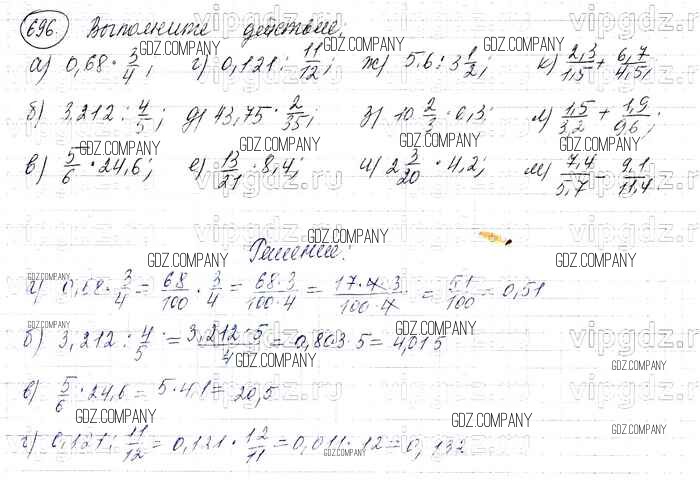 696. Выполните действие.
а) 0,68 · 3/4; г) 0,121 : 11/12; ж) 5,6 : 3 1/2; к) 2,3/1,5 + 6,7/4,5;
б) 3,212 : 4/5; д) 43,75 · 2/35; з) 10 2/3 · 0,3; л) 1,5/3,2 + 1,9/9,6;
в) 5/6 · 24,6; е) 13/21 · 8,4; и) 2 3/20 · 4,2; м) 7,4/5,7 - 9,1/11,4.
Решение:
а) 0,68 · 3/4 = 68/100 · 3/4 = 68·3/100·4 = 17·4·3/100·4 = 51/100 = 0,51
б) 3,212 : 4/5 = 3,212·5/4 = 0,803·5 = 4,015
в) 5/6 · 24,6 = 5·4,1 = 20,5
г) 0,121 : 11/12 = 0,121 · 12/11 = 0,011·12 = 0,132
GDZ.COMPANY
vipgdz.ru